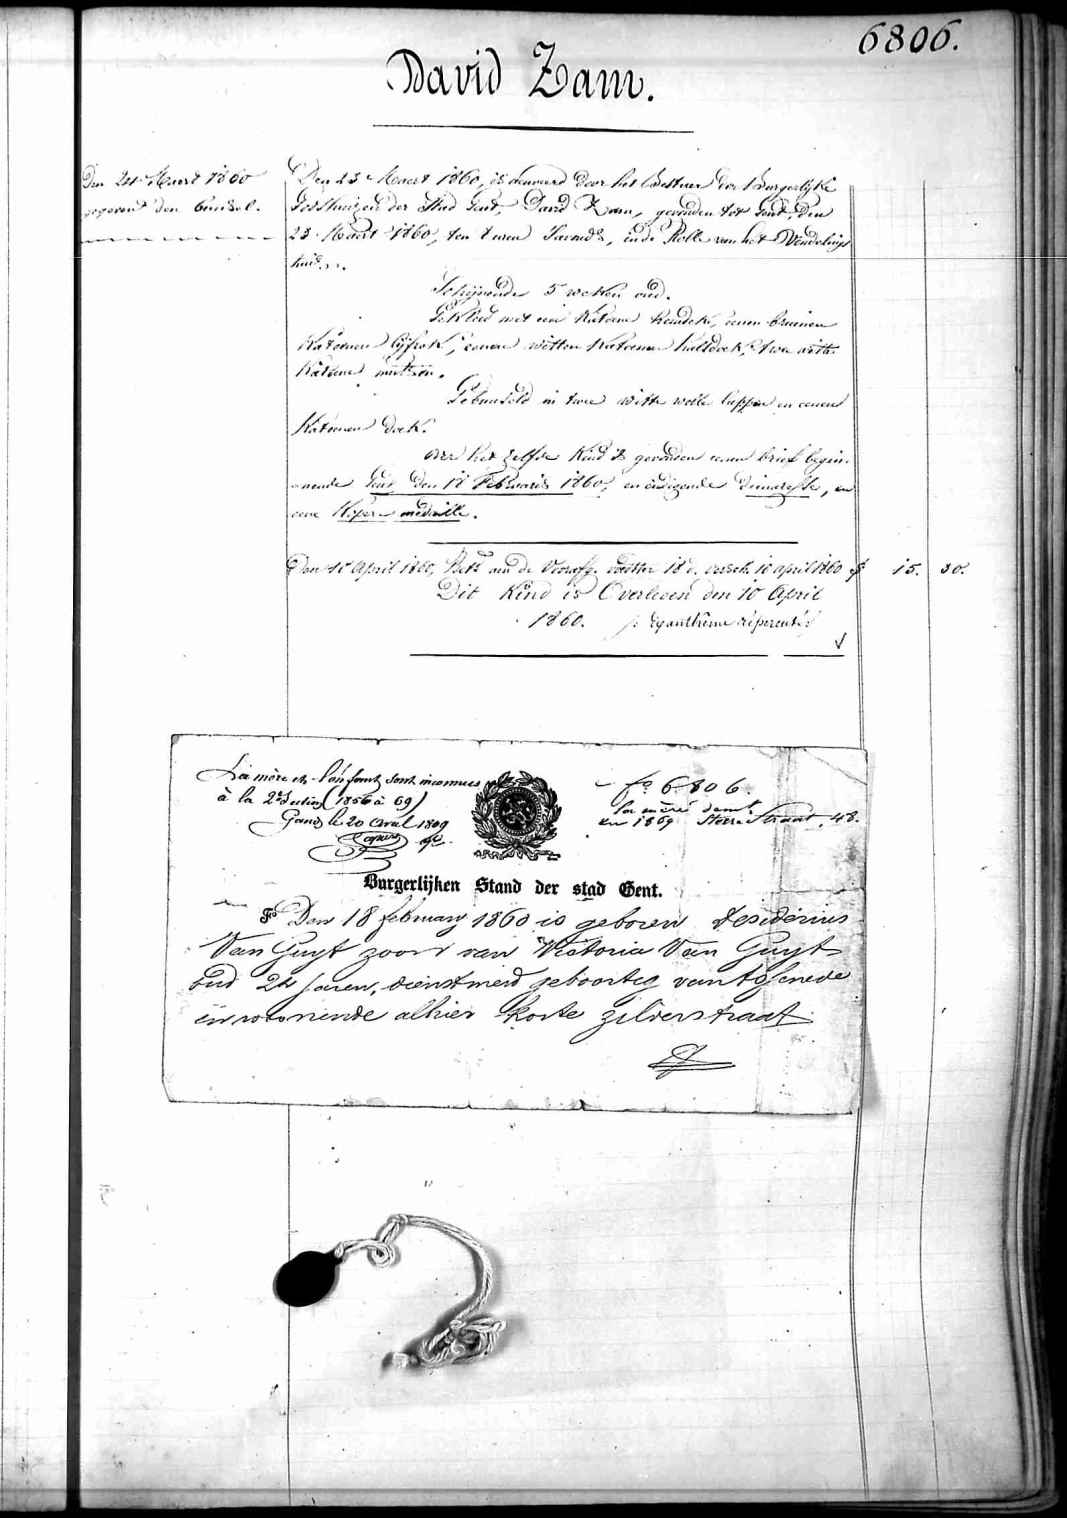 6806.
David Zam.
Den 24 Maert 1860
gegeven den bundel.
Den 23 Maert 1860, is door het Bestuer der Burgerlyke
Godshuizen der Stad Gent, David Zam, gevonden tot Gent, den
23 Maert 1860, ten uren Savonds, in de Rolle van het Vondelings
huis.
Schynende 5 weken oud.
Gekleed met een katoene hemdeke, eenen bruinen
katoenen lyfrok, eenen witten katoenen halsdoek, twee witte
katoene mutsen.
Gebundeld in twee witte wolle lappen en eenen
katoenen doek.
Over het zelfde kind is gevonden eenen brief begin-
nende Gent den 18 Februarij 1860, en eindigende, en
eene kopere medaille.
Den 10 April 1860, aan de voedster 18 d. versch. 10 april 1860 15. 30.
Dit kind is Overleden den 10 April
1860.
La mère et l'enfant sont inconnus
à la 2e Section (1856 à 69)
Gand le 20 Avril 1869
fo 6806.
la mère demt.
en 1869 Straat, 48.
Burgerlijken Stand der stad Gent.
Den 18 february 1860 is geboren Desiderius
Van Guyt zoon van Victoria Van Guyt
oud 24 jaren, dienstmeid geboortig van Assenede
en woonende alhier korte zilverstraat